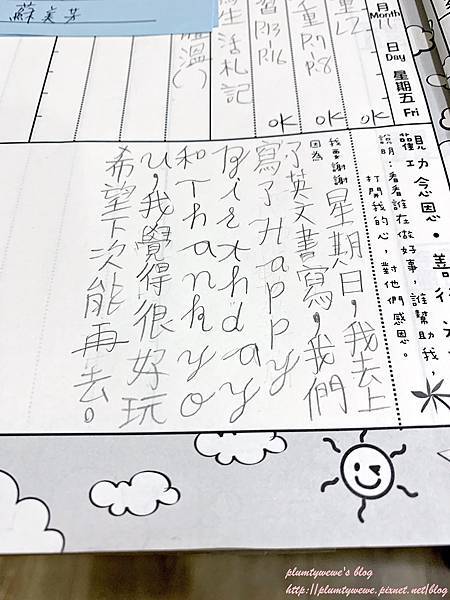 月 Month
日 Day
星期五 Fri
OK
OK
OK
生活札記
體溫( )
蘇美芳
觀功念恩・善行
說明：看看誰在做好事，誰幫助我，
打開我的心，對他們感恩。
我要謝謝
因為
星期日，我去上
了英文書寫，我們
寫了Happy
Birthday
和Thankyo
u，我覺得很好玩
希望下次能再去。
plumtywewe's blog
http://plumtywewe.pixnet.net/blog